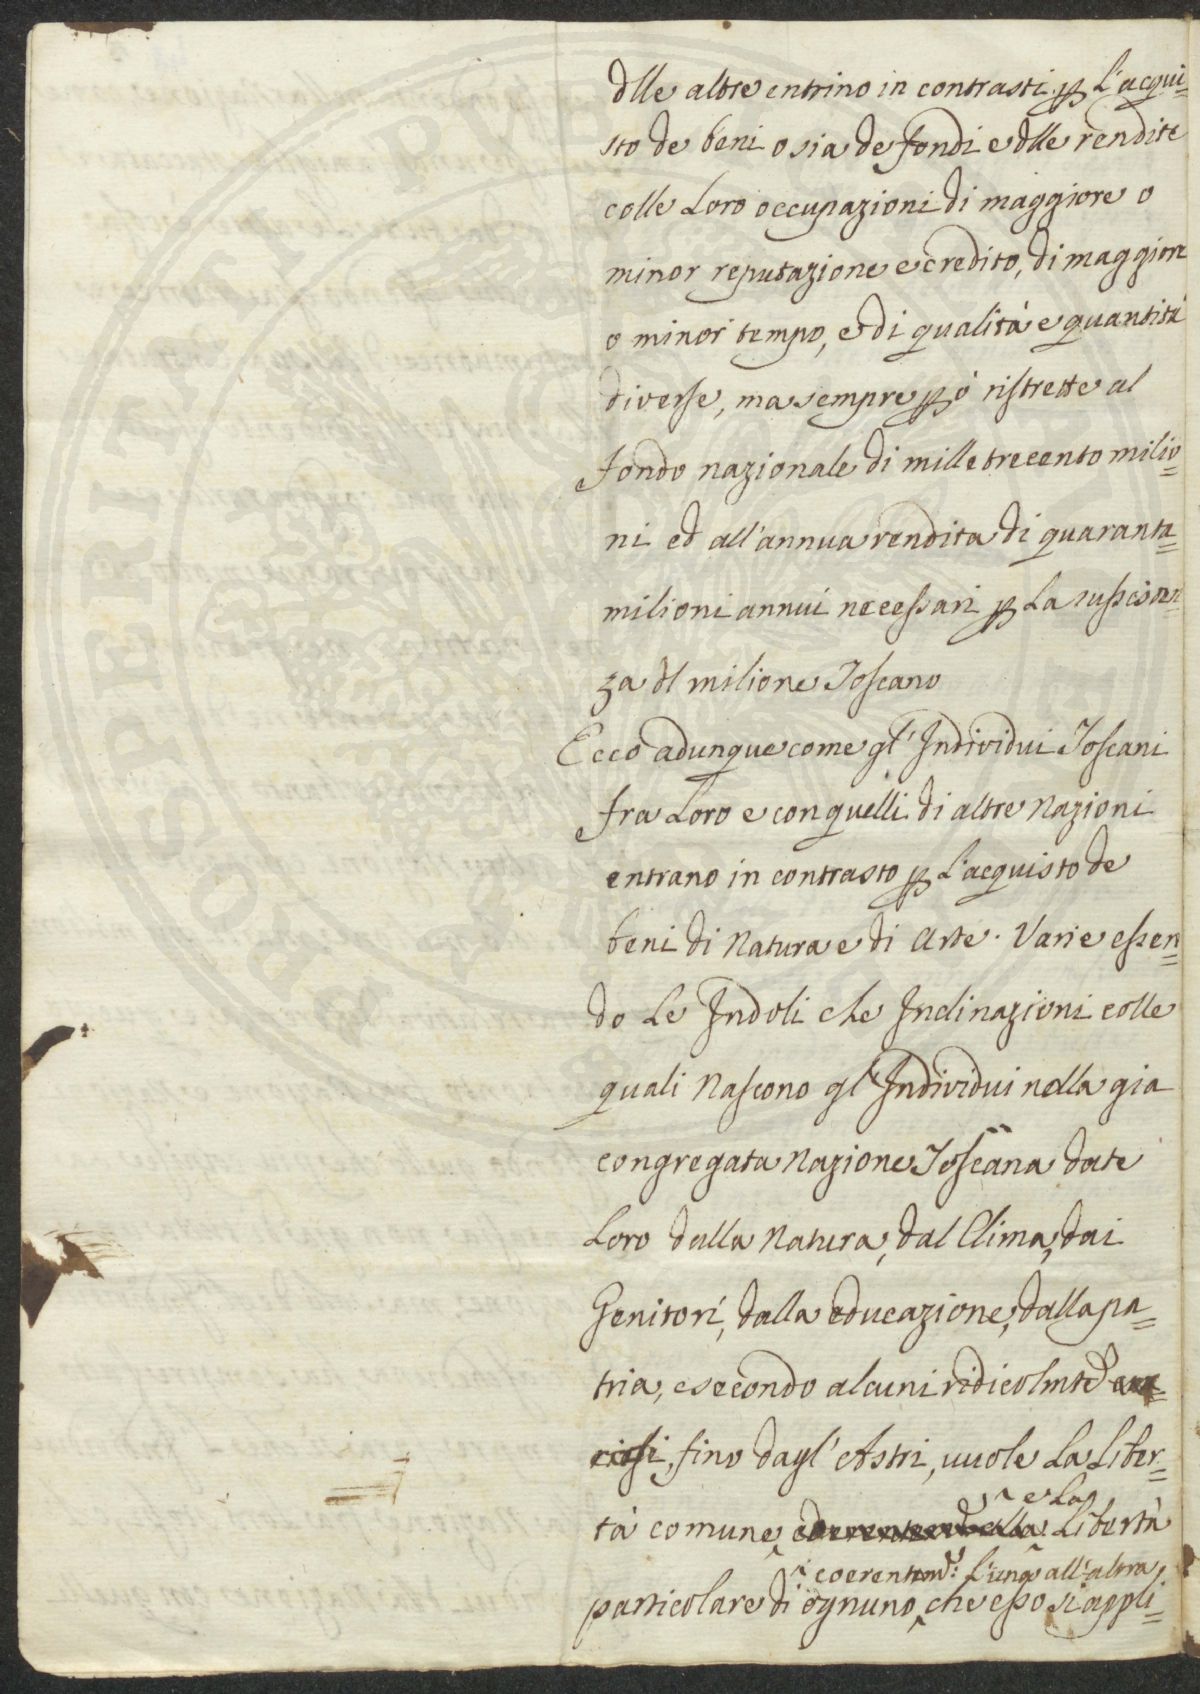 dlle altre entrino in contrasti p L'acqui=
sto de beni o sia de fondi e dlle rendite
colle Loro occupazioni di maggiore o
minor reputazione e credito, di maggiore
o minor tempo, e di qualità e quantità
diverse, ma sempre pò ristrette al
fondo nazionale di mille trecento milio=
ni ed all'annua rendita di quaranta=
milioni annui necessari p La sussisten=
za dl milione Toscano
Ecco adunque come gl'Individui Toscani
fra Loro e con quelli di altre Nazioni
entrano in contrasto p L'acquisto de
beni di Natura e di Arte. Varie essen=
do Le Indoli che Inclinazioni colle
quali Nascono gl'Individui nella gia
congregata Nazione Toscana date
Loro dalla Natura, dal Clima, dai
Genitori, dalla educazione, dalla pa=
tria, e secondo alcuni ridicolmte
fino dagl'Astri, vuole La Liber=
e La
tà comune Libertà
coerentemte: L'una all'altra
particolare di ognuno, che esso si appli=